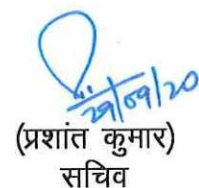 29/09/20
(प्रशांत कुमार)
सचिव